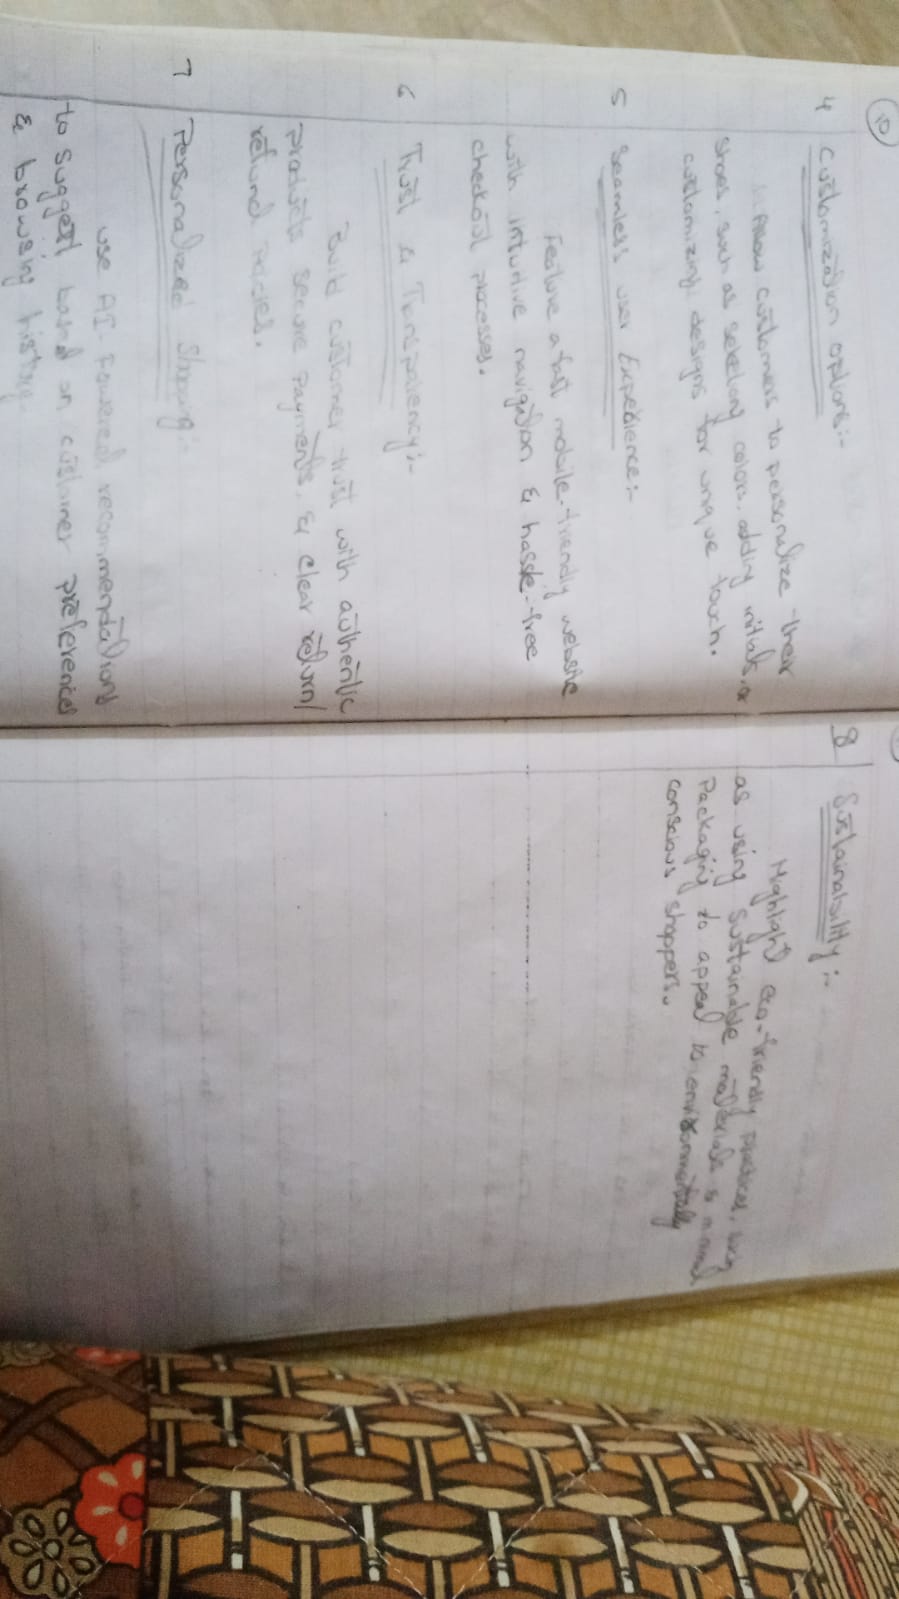 10
4 Customization options:-
Allow customers to personalize their
shoes, such as selecting colors, adding initials, or
customizing designs for unique touch.
5 Seamless user Expedience:-
Feature a fast mobile-friendly website
with intuitive navigation & hassle-free
checkout processes.
6 Trust & Transpatency:-
Build customer trust with authentic
products secure payments, & clear return/
refund policies.
7 Personalized Shopping:-
use AI-Powered recommendations
to suggest based on customer preferences
& browsing history.
8 Sustainability:-
Highlight eco-friendly practices, such
as using sustainable materials &
Packaging to appeal to environmentally
conscious shoppers.